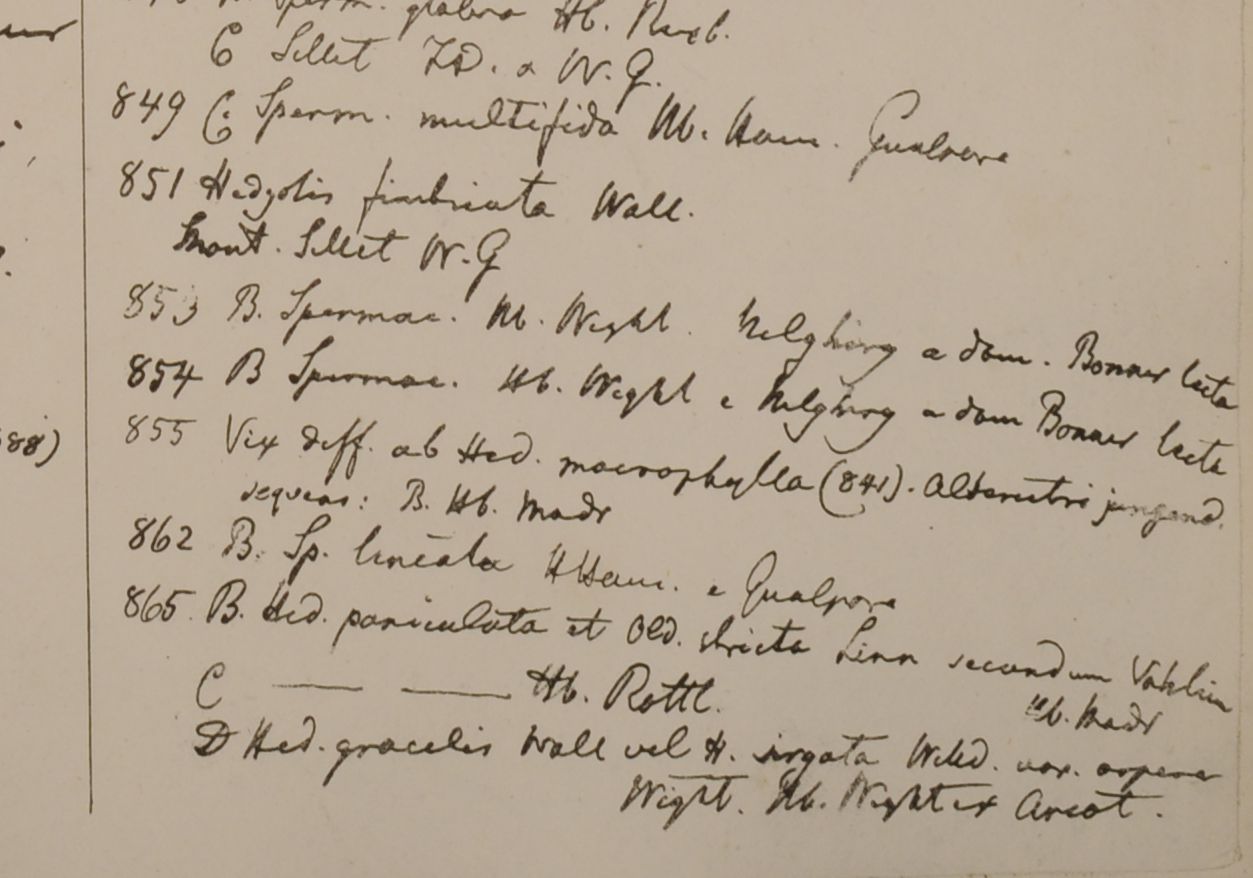 Sperm. glabra Hb. Roxb.
C Sillet FD. & W. G.
849 C. Sperm. multifida Hb. Ham. Gualpara
851 Hedyotis fimbriata Wall.
Mont. Sillet W. G
853 B. Spermac. Hb. Wight. Nelghirry a dom. Bonner lecta
854 B Spermac. Hb. Wight e Nelghirry a dom Bonner lecta
855 Vix diff. ab Hed. macrophylla (841). Alterutri jungend.
sequens: B. Hb. Madr
862 B. Sp. lineata HHam. e Gualpara
865. B. Hed. paniculata et Old. stricta Linn secundum Vahlium
Hb. Madr
C — — Hb. Rottl.
D Hed. gracilis Wall vel H. virgata Willd. var. aspera
Wight. Hb. Wight ex Arcot.
88)